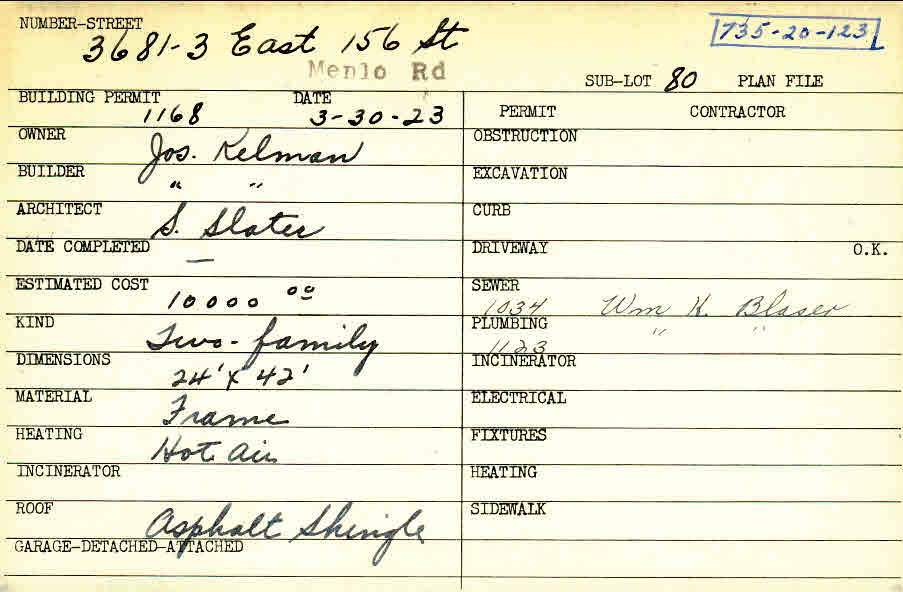 NUMBER-STREET
3681-3 East 156 St
735-20-123
Menlo Rd
SUB-LOT 80 PLAN FILE
BUILDING PERMIT DATE
1168 3-30-23
PERMIT CONTRACTOR
OWNER Jos. Kelman
OBSTRUCTION
BUILDER " "
EXCAVATION
ARCHITECT S. Slater
CURB
DATE COMPLETED —
DRIVEWAY O.K.
ESTIMATED COST 10000 00
SEWER
1034 Wm K. Blaser
KIND Two-family
PLUMBING " "
1123
DIMENSIONS 24' x 42'
INCINERATOR
MATERIAL Frame
ELECTRICAL
HEATING Hot Air
FIXTURES
INCINERATOR
HEATING
ROOF Asphalt Shingle
SIDEWALK
GARAGE-DETACHED-ATTACHED